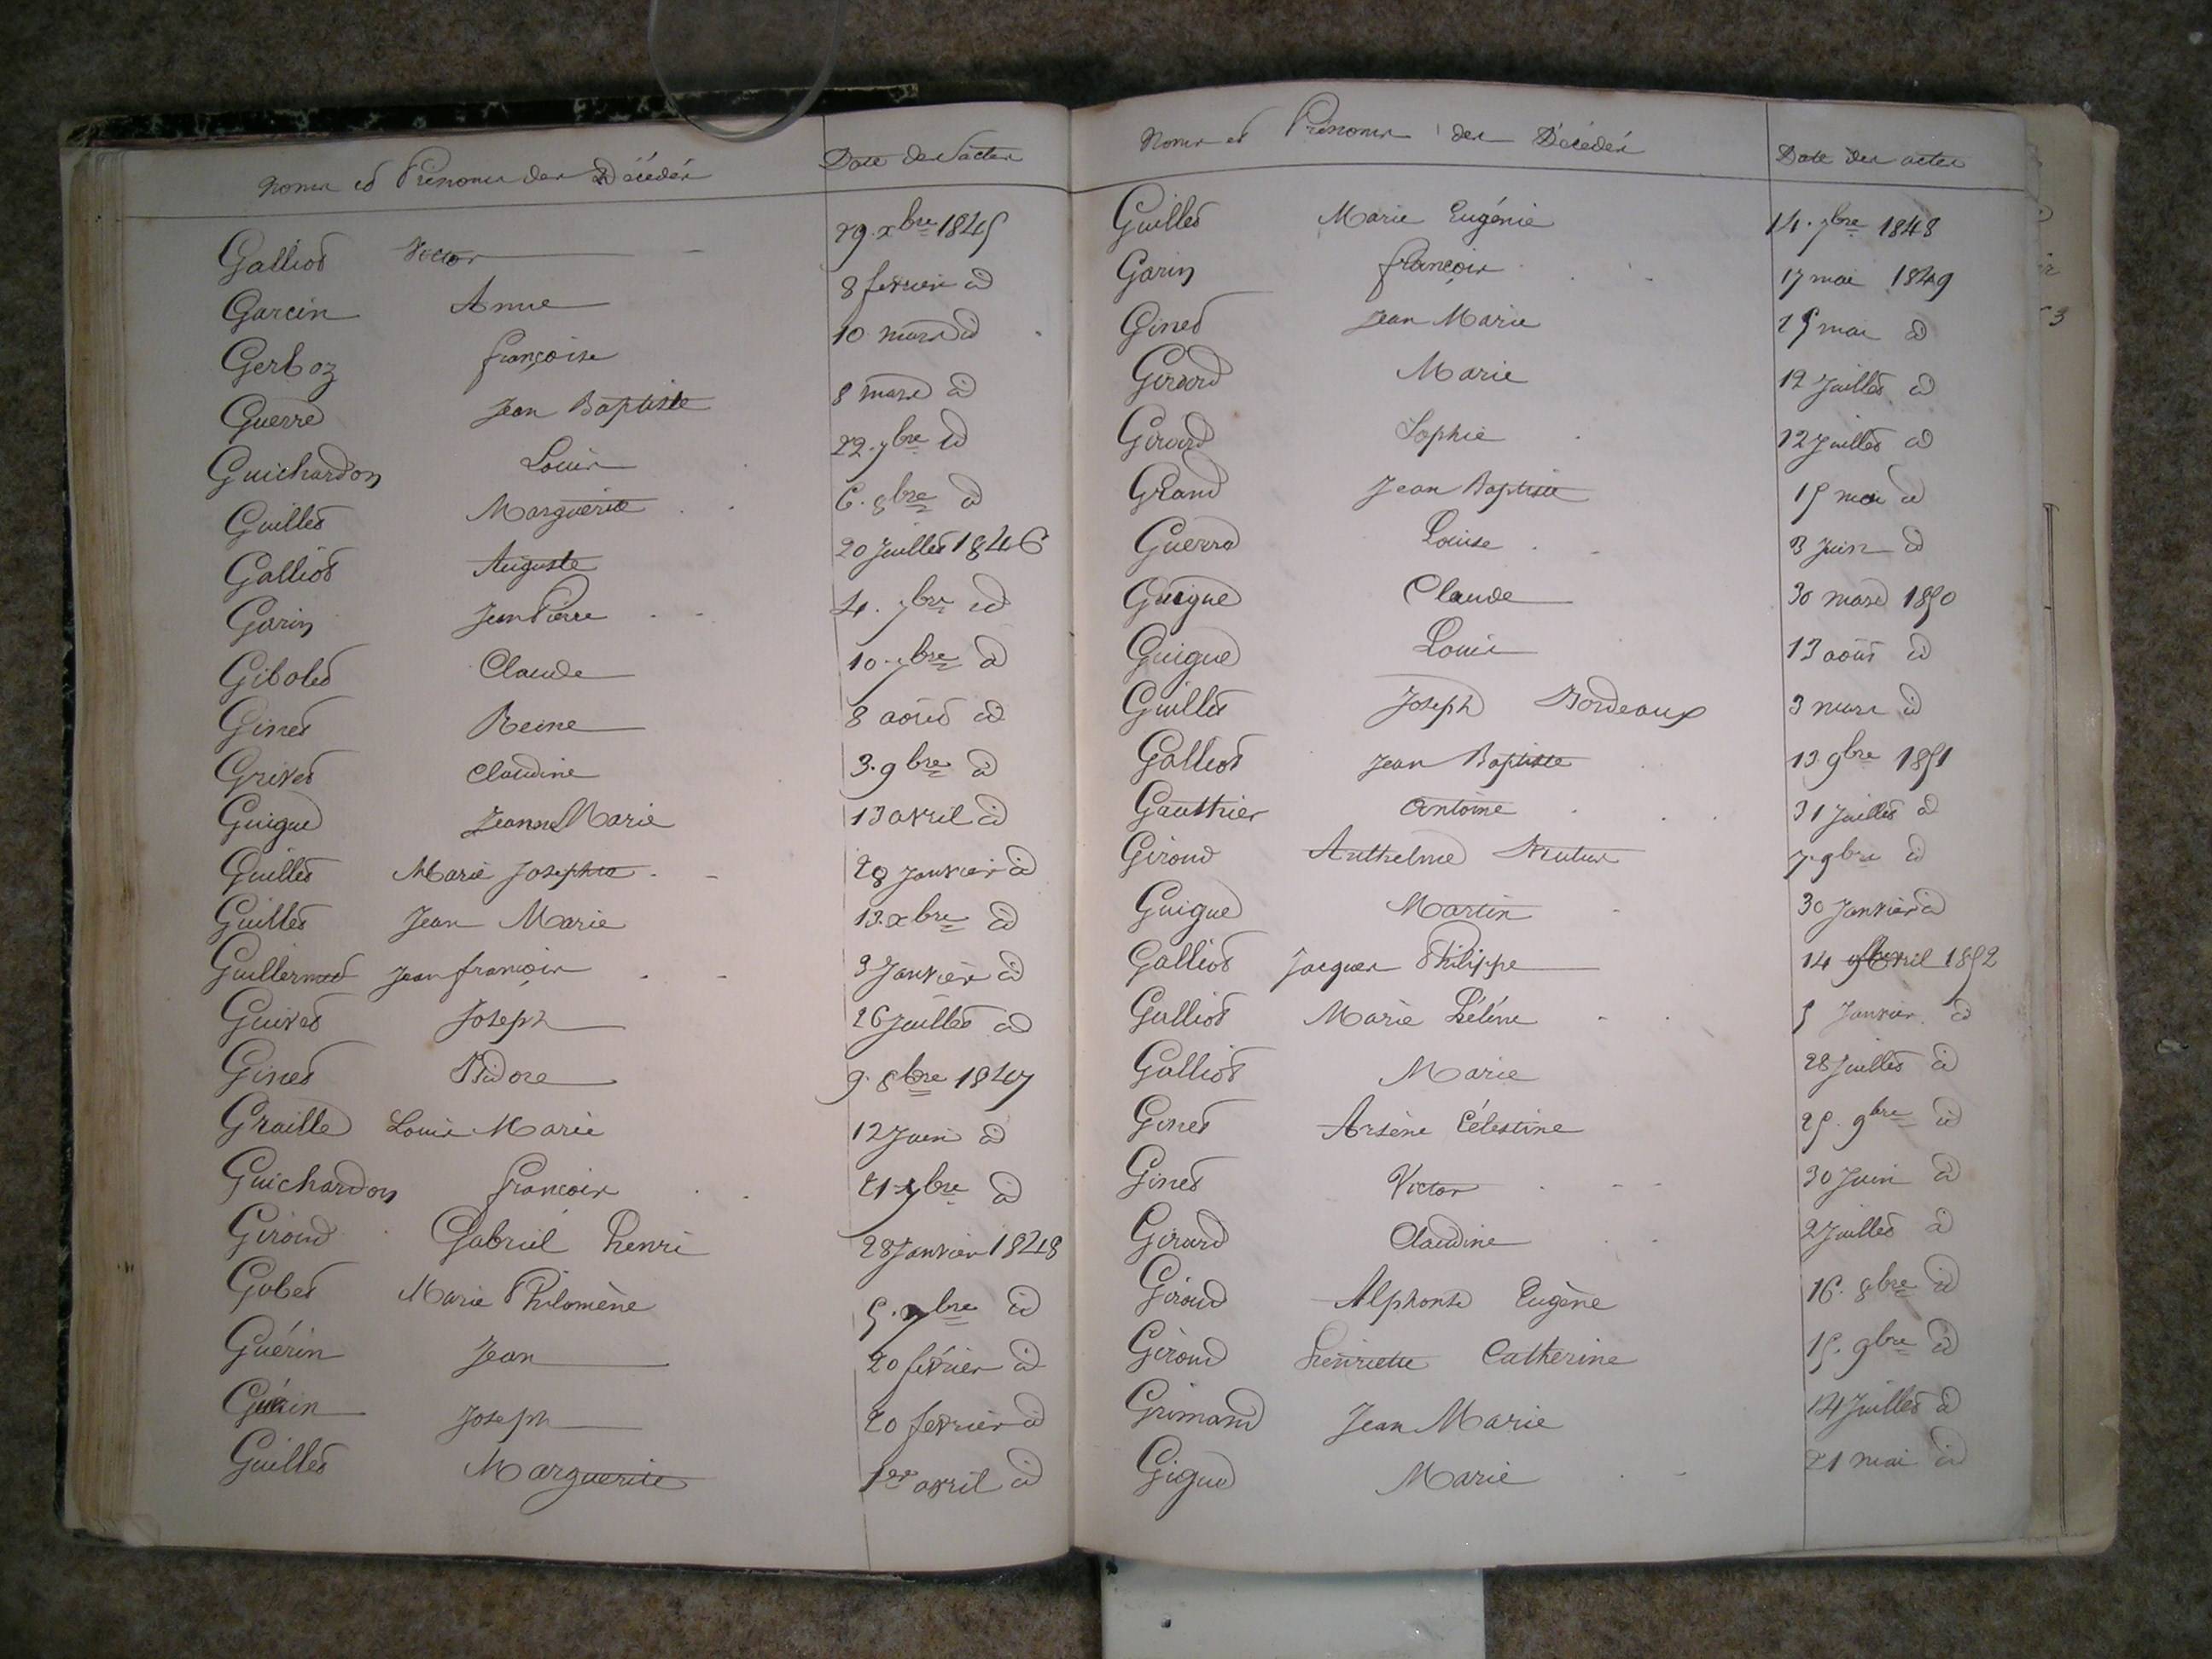 Noms et Prénoms des Décédés Date des actes
Galliot Victor 29. xbre 1845
Garcin Anne 8 fevrier id
Gerboz françoise 10 mars id
Guerre Jean Baptiste 8 mars id
Guichardon Louis 22. 7bre id
Guillet Marguerite 6. 8bre id
Galliot Auguste 20 Juillet 1846
Garin Jean Pierre 4. 7bre id
Gibolet Claude 10. 7bre id
Ginet Reine 8 août id
Grivet Claudine 3. 9bre id
Guigue Jeanne Marie 13 avril id
Guillet Marie Josephte 28 Janvier id
Guillet Jean Marie 13. xbre id
Guillermet Jean françois 3 Janvier id
Guivet Joseph 26 Juillet id
Ginet Isidore 9. 8bre 1847
Graille Louis Marie 12 Juin id
Guichardon françois 21 7bre id
Giroud Gabriel henri 28 Janvier 1848
Gobet Marie Philomène 5. 7bre id
Guérin Jean 20 février id
Guérin Joseph 20 fevrier id
Guillet Marguerite 1er avril id
Noms et Prénoms des Décédés Date des actes
Guillet Marie Eugénie 14. 7bre 1848
Garin françois 17 mai 1849
Ginet Jean Marie 25 mai id
Girard Marie 12 Juillet id
Girard Sophie 12 Juillet id
Grand Jean Baptiste 15 mai id
Guerre Louise 3 Juin id
Guigue Claude 30 mars 1850
Guigue Louis 13 août id
Guillet Joseph Bordeaux 3 mars id
Galliot Jean Baptiste 13 9bre 1851
Gauthier Antoine 31 Juillet id
Giroud Anthelme 7. 9bre id
Guigue Martin 30 Janvier id
Galliot Jacques Philippe 14 avril 1852
Galliot Marie hélène 5 Janvier id
Galliot Marie 28 Juillet id
Ginet Arsène Célestine 25. 9bre id
Ginet Victor 30 Juin id
Girard Claudine 2 Juillet id
Giroud Alphonse Eugène 16. 8bre id
Giroud henriette Catherine 15. 9bre id
Grimand Jean Marie 14 Juillet id
Gigue Marie 21 mai id